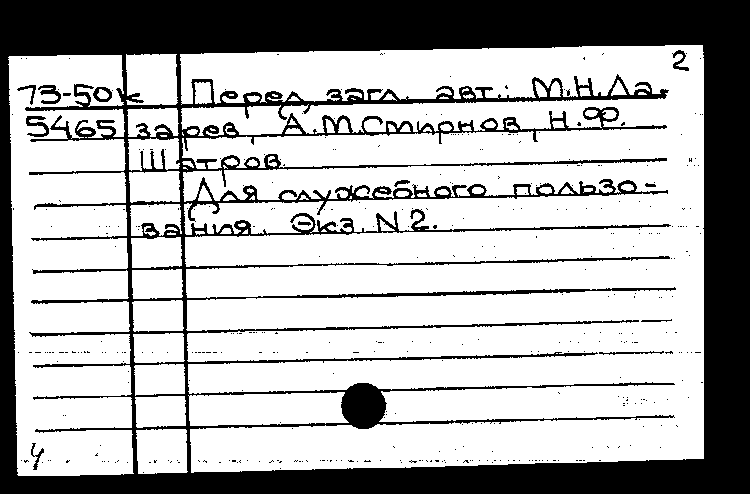 2
73-50к Перед загл. авт.: М.Н.Ла-
5465 зарев, А.М.Смирнов, Н.Ф.
Шатров.
Для служебного пользо-
вания. Экз. N 2.